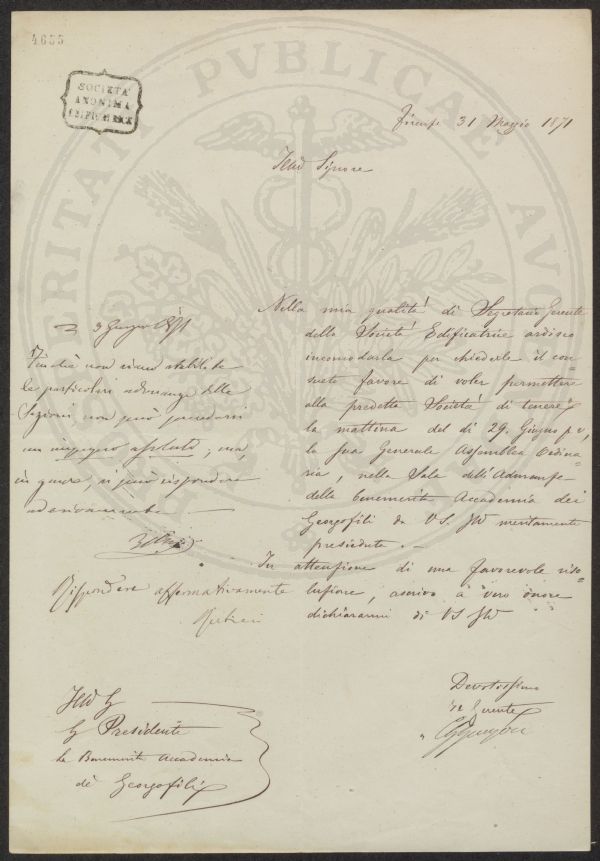 4655
SOCIETÀ
ANONIMA
EDIFICATRICE
PVBLICAE
Firenze 31 Maggio 1871
Illmo Signore
Nella mia qualità di Segretario Gerente
della Società Edificatrice ardisco
incomodarla per chiederle il con=
sueto favore di voler permettere
alla predetta Società di tenere,
la mattina del dì 29. Giugno p v,
la sua Generale Assemblea Ordina=
ria, nella Sala dell'Adunanze
della benemerita Accademia dei
Georgofili da VS. Illma meritamente
presieduta. —
In attenzione di una favorevole riso=
luzione, ascrivo a vero onore
dichiararmi di VS Illma
Devotissimo
Il Gerente
3 Giugno 1871
Finchè non siano stabilite
le particolari adunanze delle
Sezioni non può prendersi
un impegno assoluto; ma,
in genere, si può rispondere
Rispondere affermativamente
Illmo Sig
Sig Presidente
la Benemerita Accademia
de Georgofili